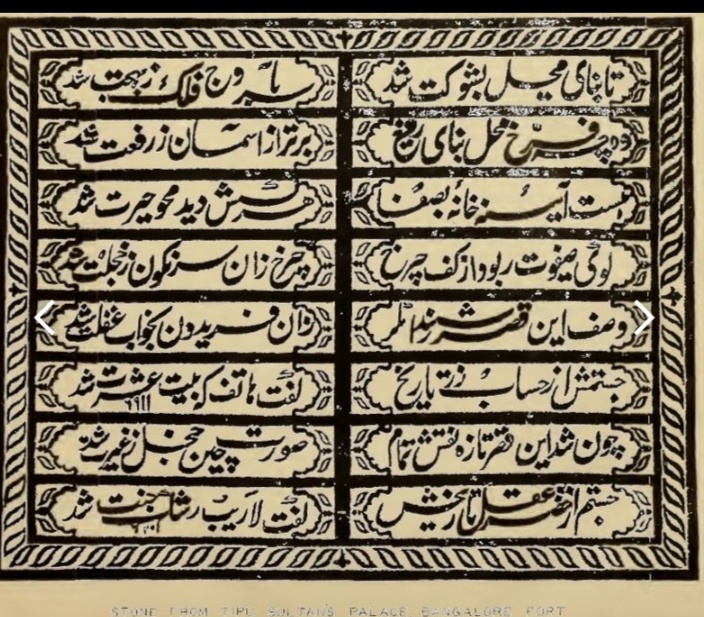 تا بنای محل بشوکت شد
فلک ز بهجت شد
وه چه فرخ محل بنای رفیع
برتر از آسمان ز رفعت شد
هست آیینه خانهٔ بصفا
هر کسش دید محو حیرت شد
گوی صفوت ربود از کف چرخ
چرخ زان سرنگون ز خجلت شد
وصف این قصر
زان فریدون بخواب غفلت شد
جستمش از حساب زر تاریخ
گفت هاتف که بیت عشرت شد
چون شد این قصر تازه نقش تمام
صورت چین خجل ز غیرت شد
جستم از خضر عقل تاریخش
گفت لاریب رشک جنت شد
STONE FROM TIPU SULTAN'S PALACE BANGALORE FORT